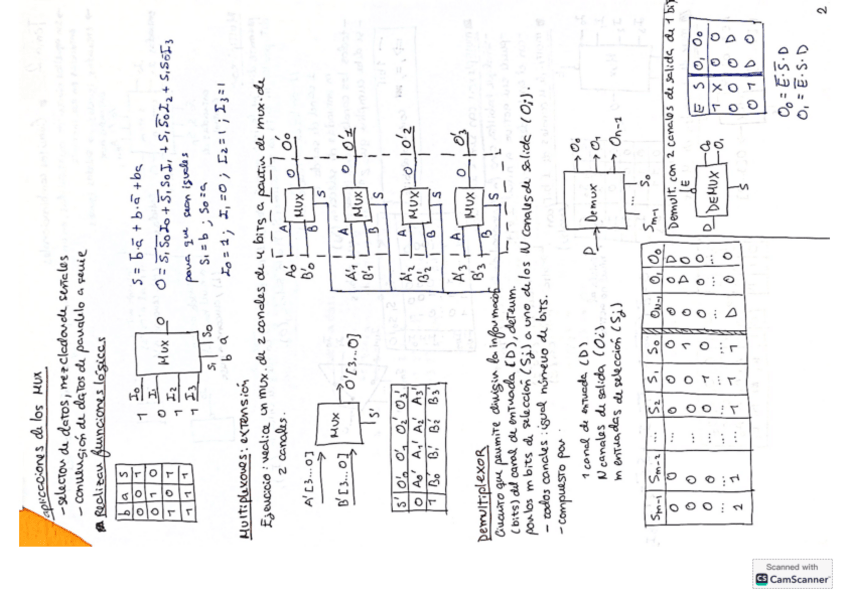 aplicaciones de los MUX
- selector de datos, mezclador de señales
- conversión de datos de paralelo a serie
Realizar funciones lógicas
b a S
0 0 1
0 1 0
1 0 1
1 1 1
1 I0
0 I1
1 I2
1 I3
MUX
O
S1 S0
b a
S = b̅·a̅ + b·a̅ + ba
O = S̅1S̅0I0 + S̅1S0I1 + S1S̅0I2 + S1S0I3
para que sean iguales
S1 = b ; S0 = a
I0 = 1 ; I1 = 0 ; I2 = 1 ; I3 = 1
Multiplexores: extensión
Ejercicio: realice un mux. de 2 canales de 4 bits a partir de mux. de
2 canales.
A'[3...0]
B'[3...0]
MUX
O'[3...0]
S'
S' O'0 O'1 O2' O3'
0 A0' A1' A2' A3'
1 B0' B1' B2' B3'
A'0 A MUX O O'0
B'0 B S
A'1 A MUX O O'1
B'1 B S
A'2 A MUX O O'2
B'2 B S
A'3 A MUX O O'3
B'3 B S
Demultiplexor
Circuito que permite dirigir la información
(bits) del canal de entrada (D), determ.
por los m bits de selección (Sj) a uno de los N canales de salida (Oi).
- todos canales: igual número de bits.
- compuesto por:
1 canal de entrada (D)
N canales de salida (Oi)
m entradas de selección (Sj)
D Demux O0
O1
On-1
Sm-1 ... S0
Sm-1 Sm-2 ... S2 S1 S0 ON-1 O1 O0
0 0 ... 0 0 0 0 0 D
0 0 ... 0 0 1 0 D 0
0 0 ... 0 1 0 0 0 0
1 1 ... 1 1 1 D 0 0
Demult. con 2 canales de salida de 1 bit
E
D DEMUX O0
O1
S
E S O1 O0
1 X 0 0
0 0 0 D
0 1 D 0
O0 = E̅·S̅·D
O1 = E̅·S·D
2
Scanned with
CS CamScanner